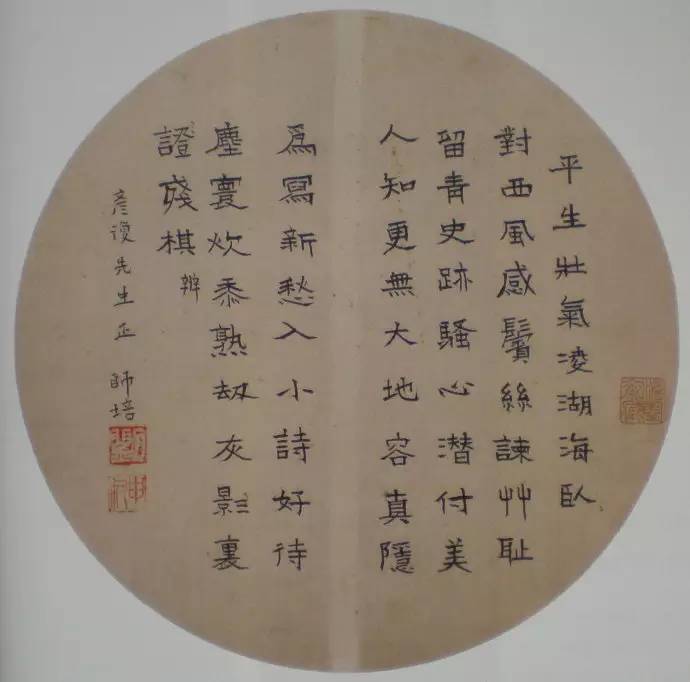 平生壯氣凌湖海臥
對西風感鬢絲諫艸耻
留青史跡騷心潛付美
人知更無大地容真隱
爲寫新愁入小詩好待
塵寰炊黍熟劫灰影裏
證殘棋 辨
彥復先生正 師培